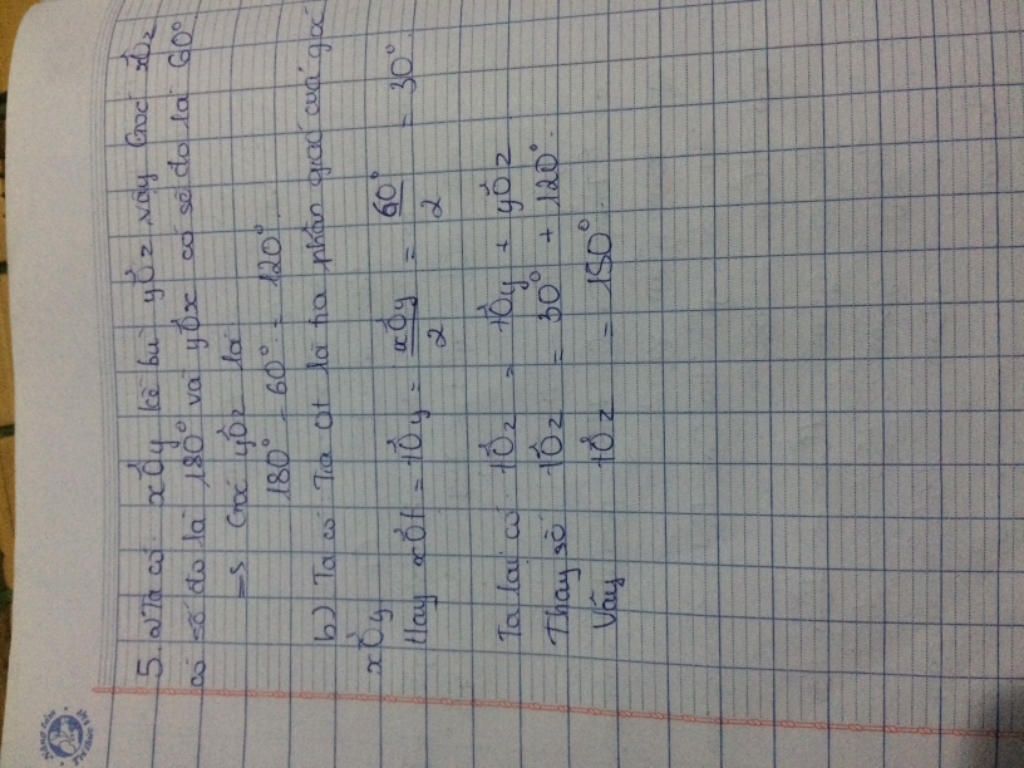 5. a) Ta có xÔy kề bù yÔz vậy Góc xÔz
có số đo là 180° và yÔx có số đo là 60°
=> Góc yÔz là
180° - 60° = 120°
b) Ta có Tia Ot là tia phân giác của góc
xÔy
Hay xÔt = tÔy = xÔy/2 = 60°/2 = 30°.
Ta lại có tÔz = tÔy + yÔz
Thay số tÔz = 30° + 120°.
Vậy tÔz = 150°.